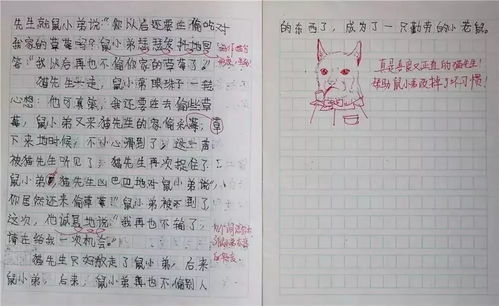 先生就鼠小弟说：“你以后还要在偷吃对
我家的草莓吗？鼠小弟瑟瑟发抖地回
答“我以后再也不偷你家的草莓了。”
猫先生一走，鼠小弟眼珠子一转
心想：他可真笨，我还要去偷些草
莓，鼠小弟又来猫先生的窗偷采莓，草
下来地时候，不小心滑到了，这些者
被猫先生听见了，猫先生再次捉住了
鼠小弟，猫先生凶巴巴地对鼠小弟说“
你居然还来偷草莓！”鼠小弟被吓到了
这次，他诚恳地说：“我再也不偷了，
请在给我一次机会。”
猫先生只好放走了鼠小弟，后来
鼠小弟，后来，鼠小弟再也不偷别人
的东西了，成为了一只勤劳的小老鼠。
真是善良又正直的猫先生！
帮助鼠小弟改掉了坏习惯！